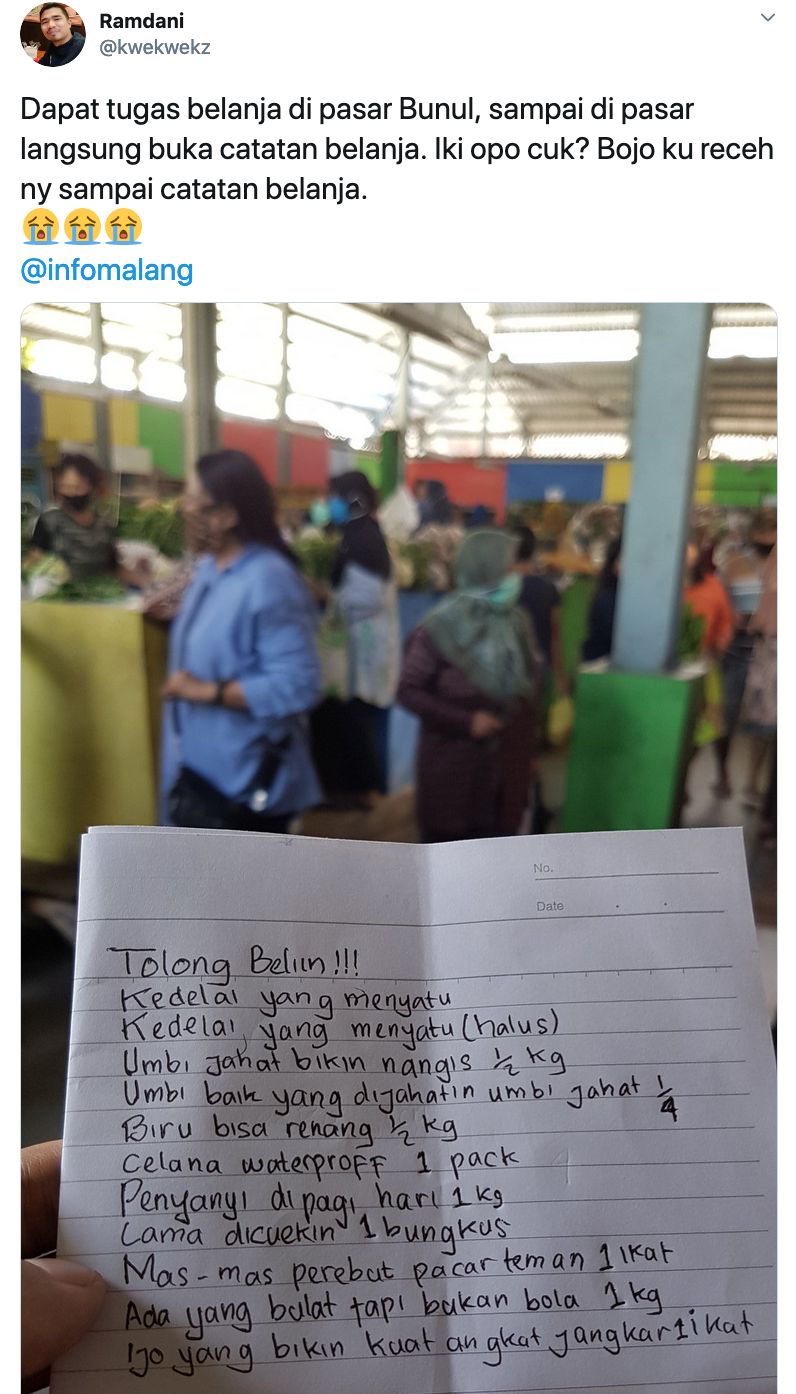 Ramdani
@kwekwekz
Dapat tugas belanja di pasar Bunul, sampai di pasar
langsung buka catatan belanja. Iki opo cuk? Bojo ku receh
ny sampai catatan belanja.
😭😭😭
@infomalang
No.
Date
Tolong Beliin!!!
Kedelai yang menyatu
Kedelai yang menyatu (halus)
Umbi jahat bikin nangis ½ kg
Umbi baik yang dijahatin umbi jahat ¼
Biru bisa renang ½ kg
Celana waterproff 1 pack
Penyanyi di pagi hari 1 kg
Lama dicuekin 1 bungkus
Mas-mas perebut pacar teman 1 ikat
Ada yang bulat tapi bukan bola 1 kg
Ijo yang bikin kuat angkat jangkar 1 ikat